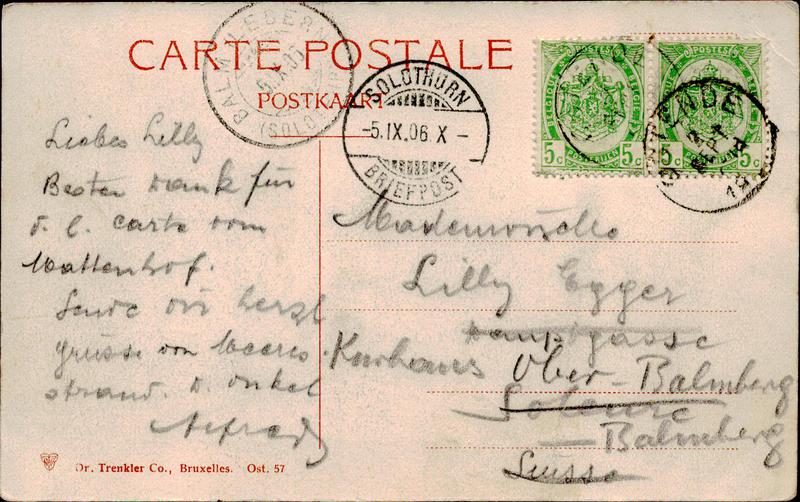 CARTE POSTALE
POSTKAART
SOLOTHURN
-5.IX.06.X-
BRIEFPOST
BALM
(SOLO
POSTES
5c 5c
POSTES
5c 5c
OSTENDE
Liebes Lilly
Besten Dank für
d. l. carte vom
Mattenhof.
Sende dir herzl
Grüsse vom Meeres
strand. D. onkel
Alfred
Mademoiselle
Lilly Egger
Hauptgasse
Kurhaus Ober-Balmberg
Soleure
— Balmberg
Suisse
Dr. Trenkler Co., Bruxelles. Ost. 57